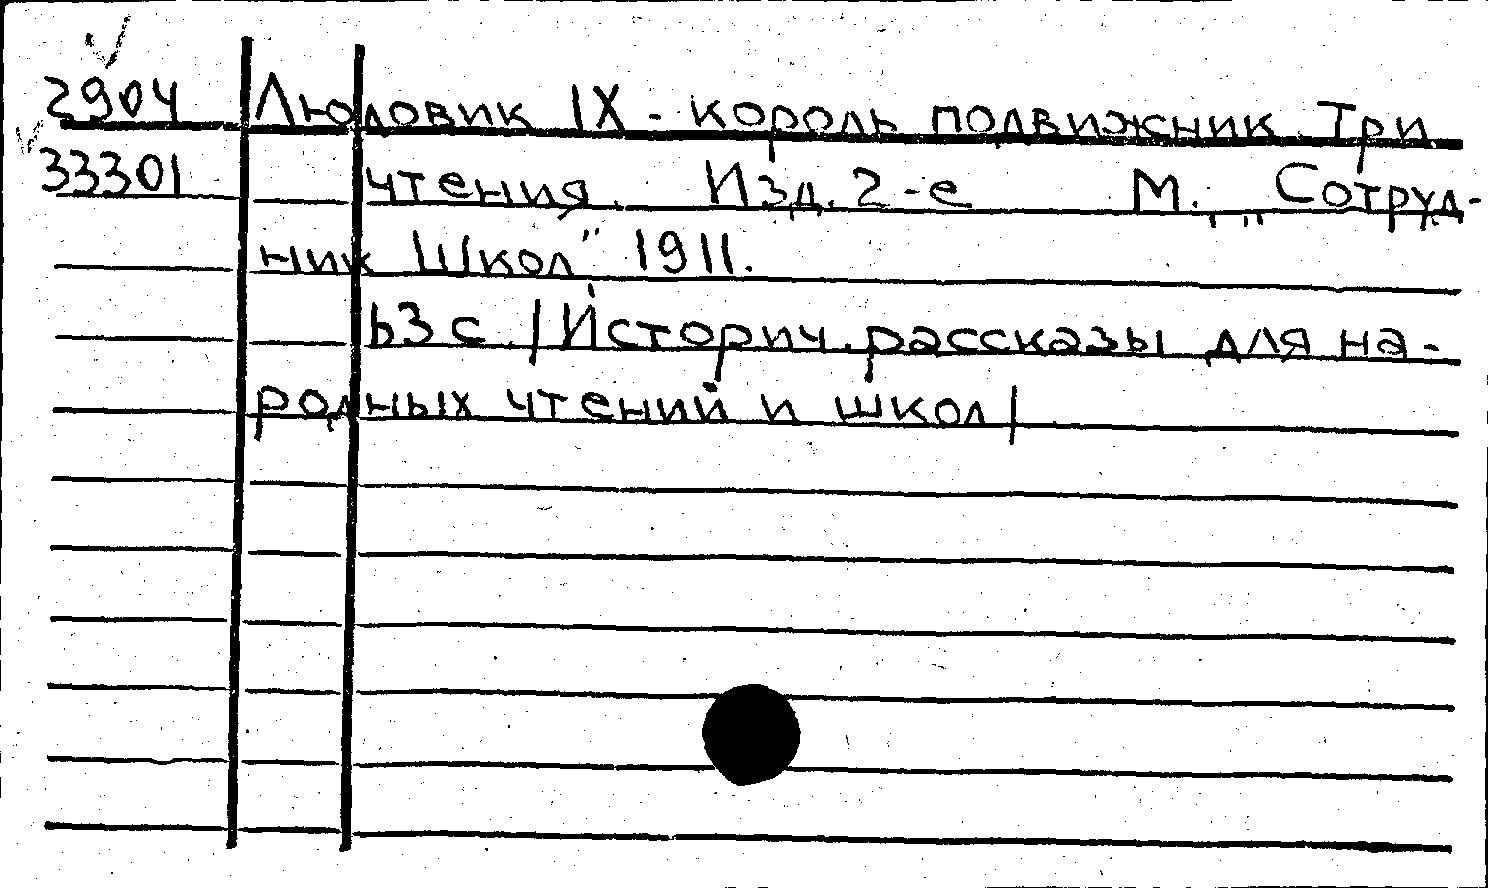 2904 Людовик IX - король подвижник Три
33301 чтения. Изд. 2-е М. „Сотруд-
ник Школ" 1911.
63 с /Историч. рассказы для на-
родных чтений и школ/